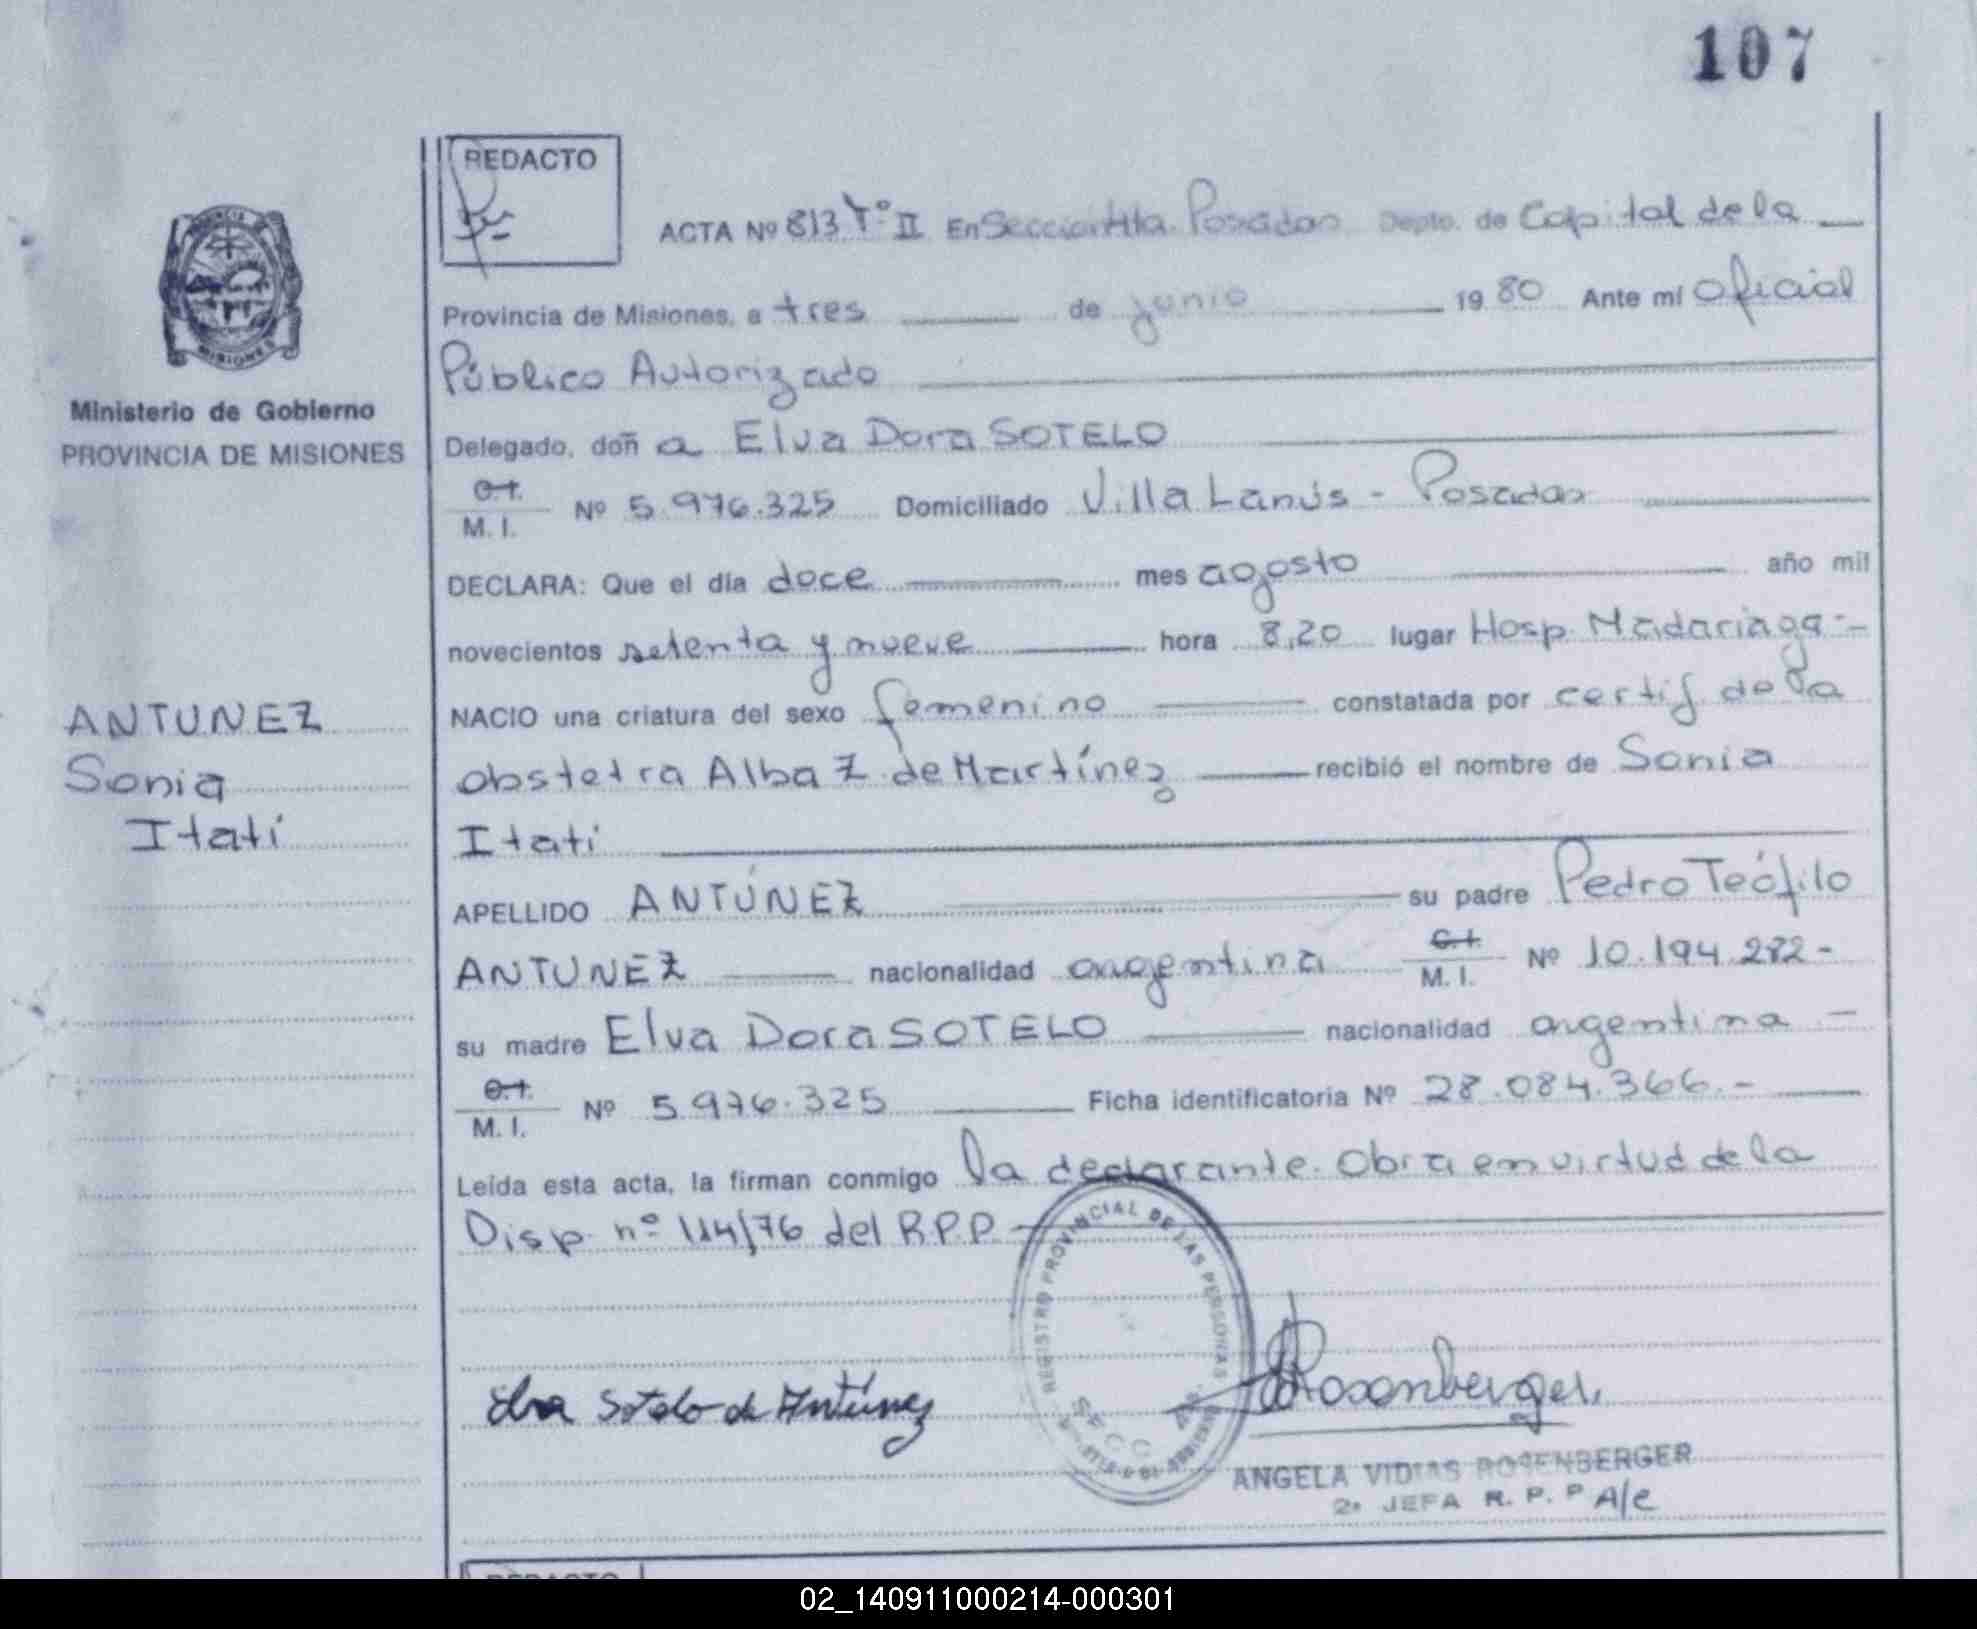 107
REDACTO
ACTA Nº 813 Tº II En Sección 4ta. Posadas Depto. de Capital de la
Provincia de Misiones, a tres de junio 19 80 Ante mí Oficial
Público Autorizado
Ministerio de Gobierno
PROVINCIA DE MISIONES
Delegado, doñ a Elva Dora SOTELO
C.I.
M. I. Nº 5.976.325 Domiciliado Villa Lanús - Posadas
DECLARA: Que el día doce mes agosto año mil
novecientos setenta y nueve hora 8,20 lugar Hosp. Madariaga -
ANTUNEZ
Sonia
Itatí
NACIO una criatura del sexo femenino constatada por certif. de la
obstetra Alba Z. de Martínez recibió el nombre de Sonia
Itatí
APELLIDO ANTÚNEZ su padre Pedro Teófilo
ANTUNEZ nacionalidad argentina C.I.
M. I. Nº 10.194.282-
su madre Elva Dora SOTELO nacionalidad argentina -
C.I.
M. I. Nº 5.976.325 Ficha identificatoria Nº 28.084.366.-
Leída esta acta, la firman conmigo la declarante. Obra en virtud de la
Disp. nº 114/76 del R.P.P.
REGISTRO PROVINCIAL DE LAS PERSONAS
SECC
Elva Sotelo de Antúnez
Rosenberger
ANGELA VIDIAS ROSENBERGER
2ª JEFA R. P. P A/c
REDACTO
02_140911000214-000301